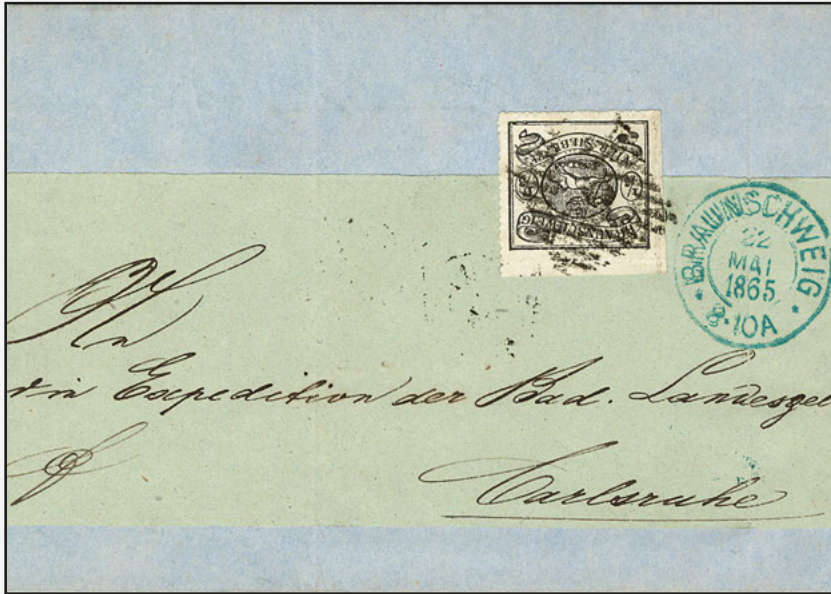 BRAUNSCHWEIG
22
MAI
1865
8-10A
An
die Expedition der Bad. Landesgel
Carlsruhe
BRAUNSCHWEIG